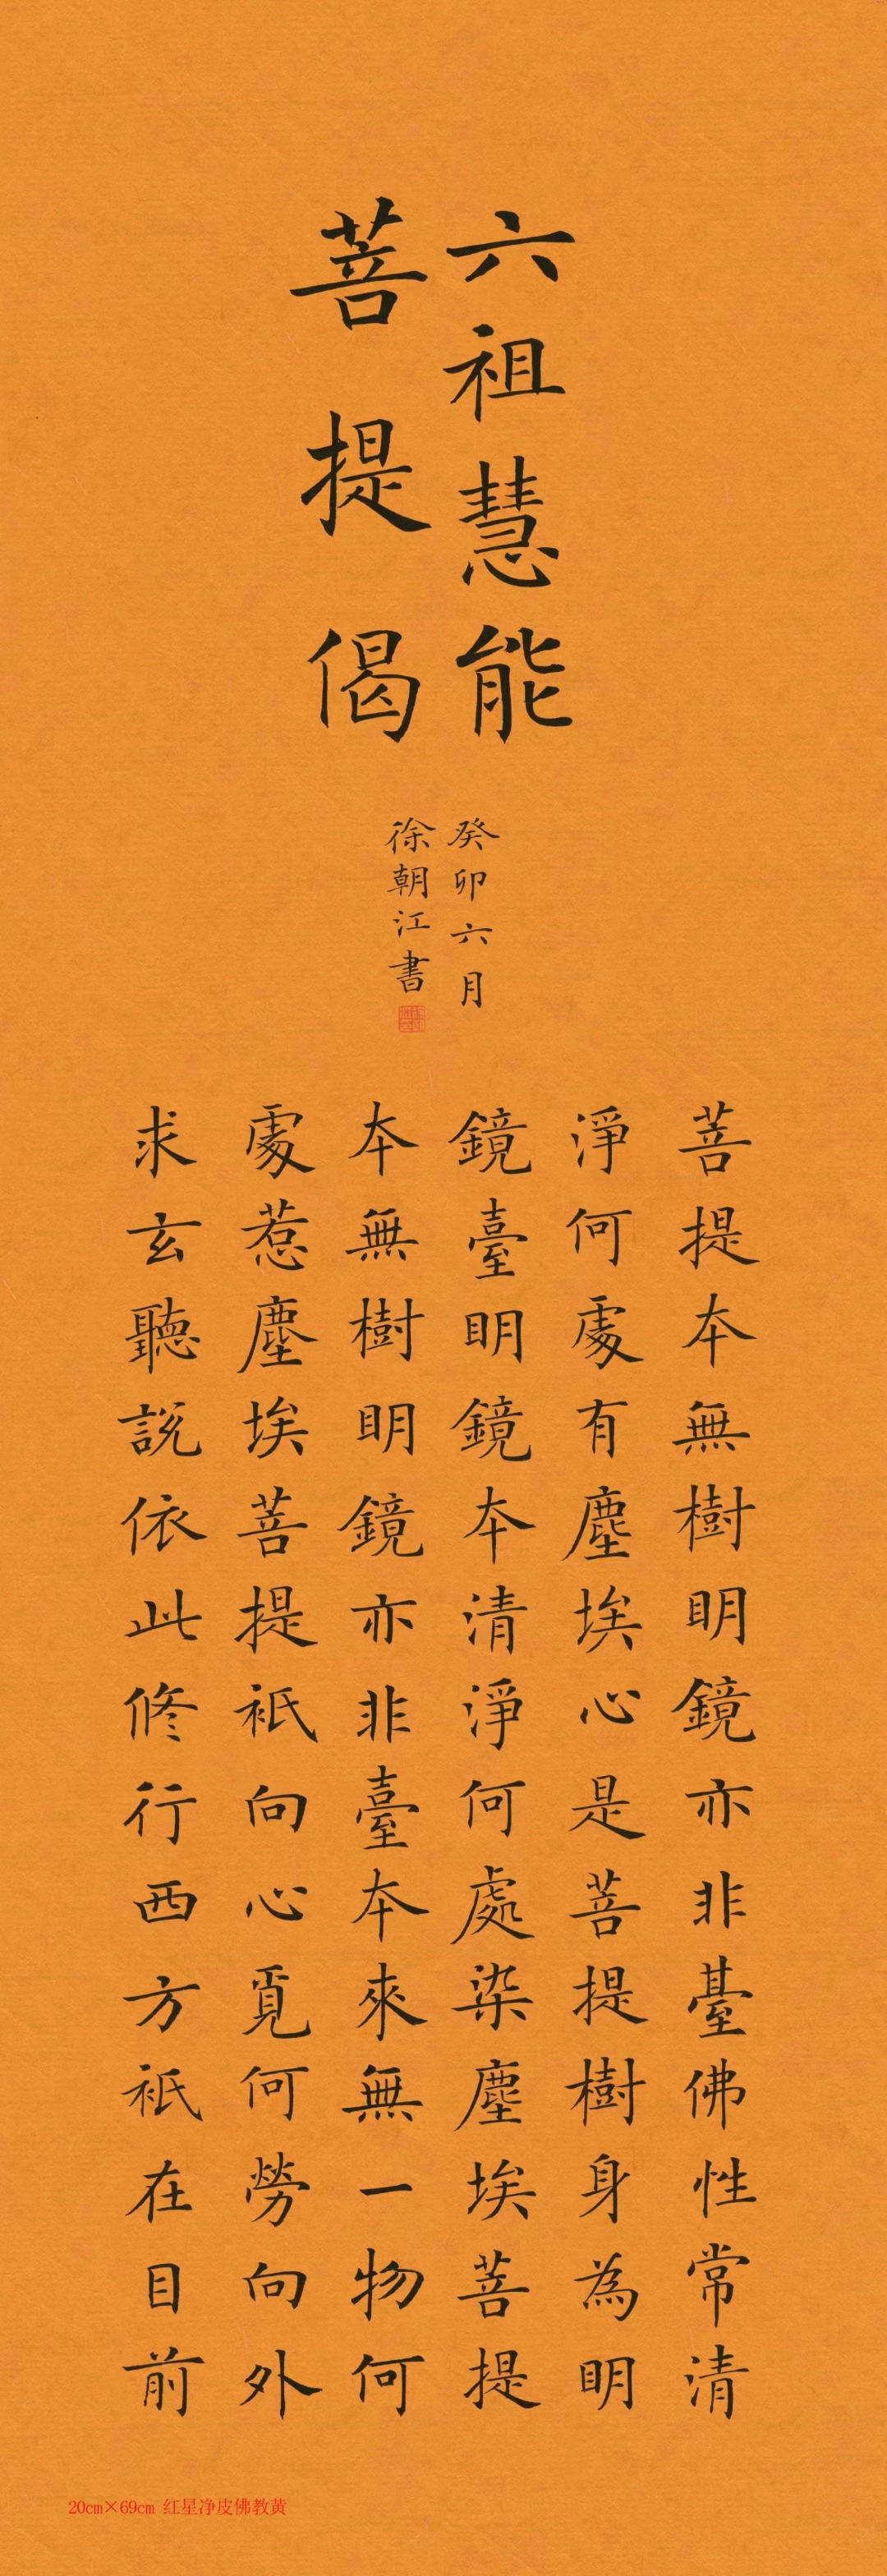 六祖慧能
菩提偈
癸卯六月
徐朝江書
菩提本無樹明鏡亦非臺佛性常清
淨何處有塵埃心是菩提樹身為明
鏡臺明鏡本清淨何處染塵埃菩提
本無樹明鏡亦非臺本來無一物何
處惹塵埃菩提衹向心覓何勞向外
求玄聽說依此修行西方衹在目前
20cm×69cm 红星净皮佛教黄